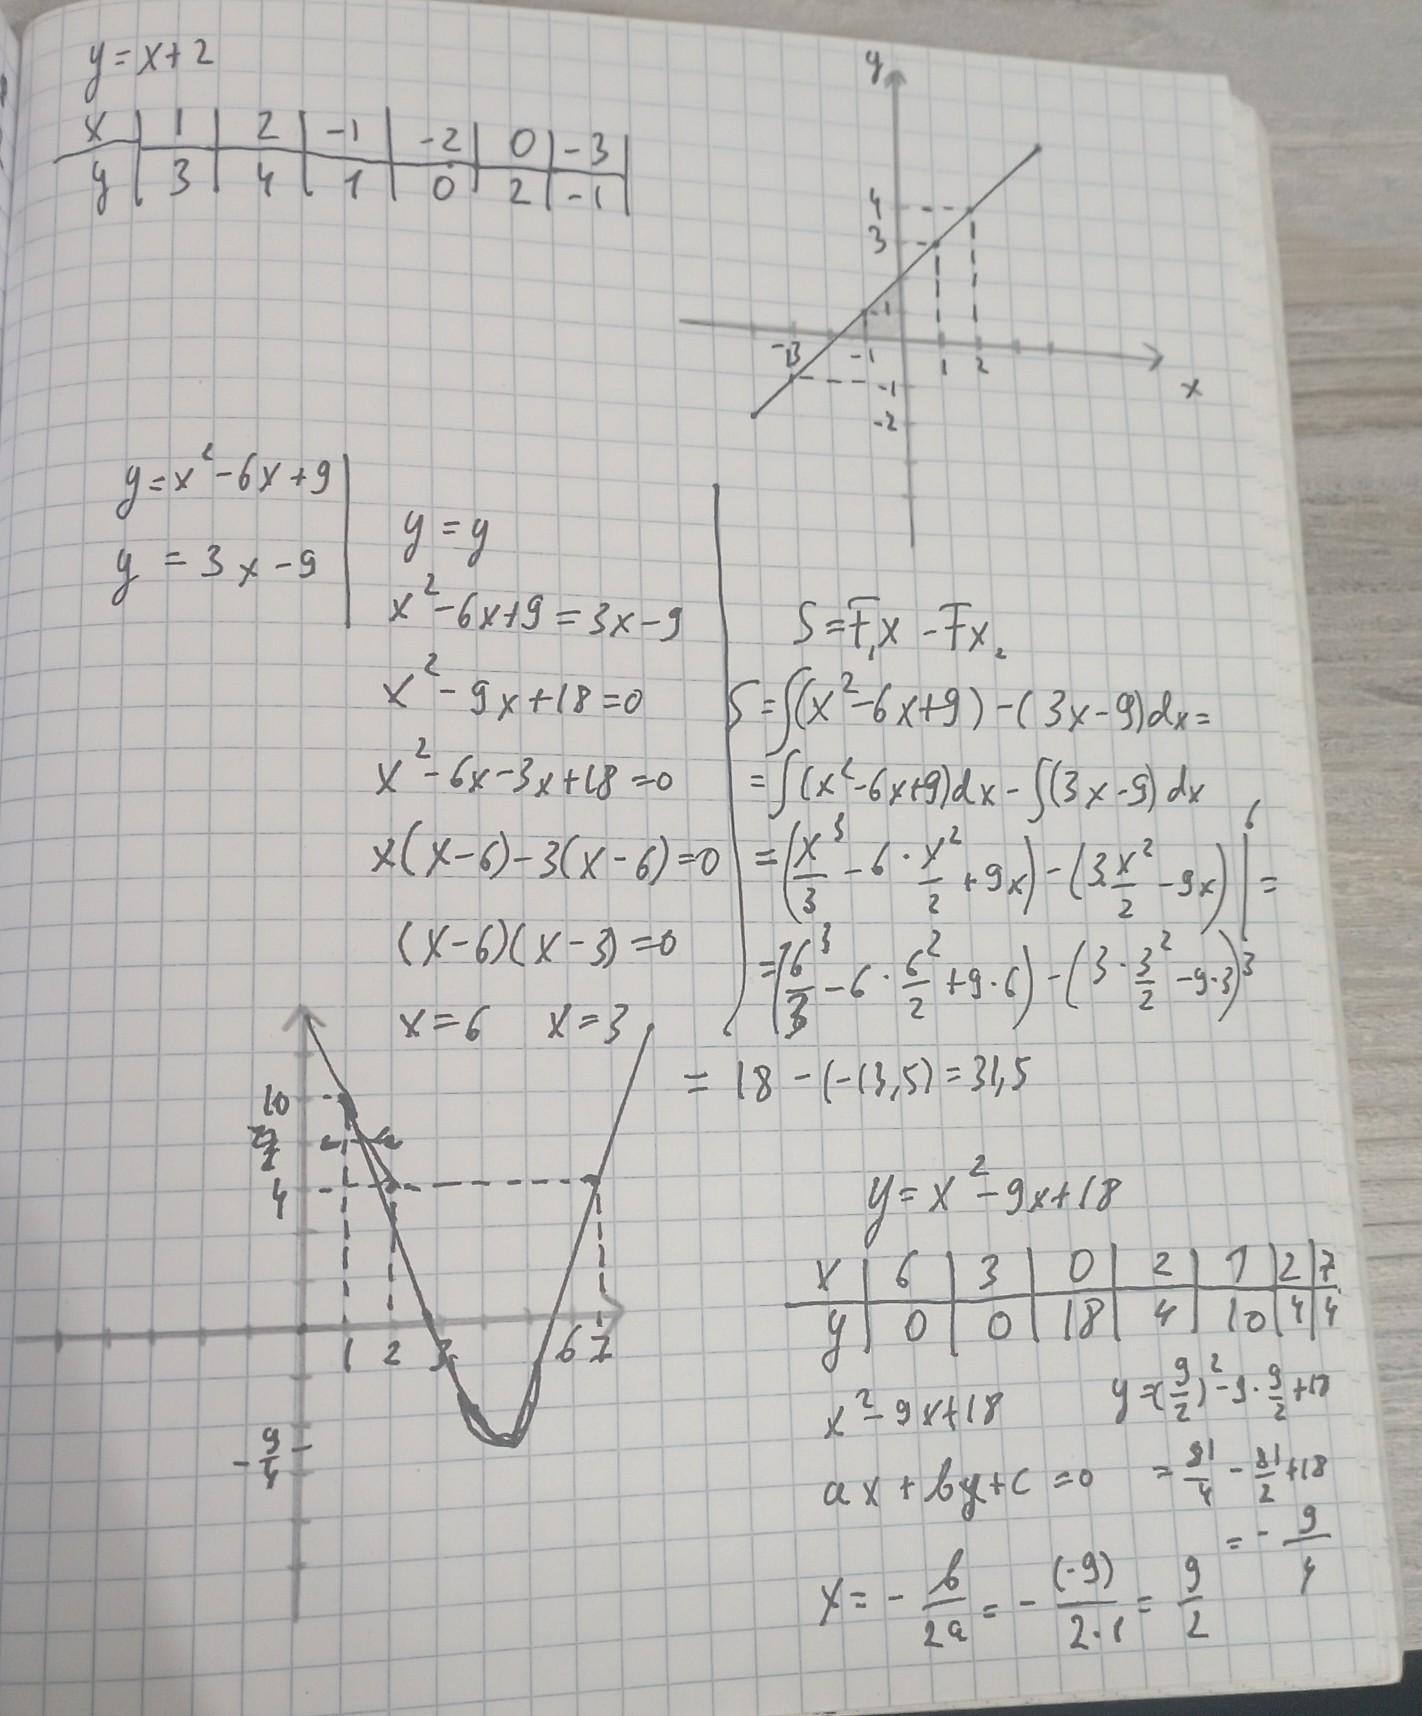 y = x + 2
x | 1 | 2 | -1 | -2 | 0 | -3
y | 3 | 4 | 1 | 0 | 2 | -1
y
4
3
-1
-3 -1 1 2
-1
x
-2
y = x² - 6x + 9
y = 3x - 9
y = y
x² - 6x + 9 = 3x - 9
x² - 9x + 18 = 0
x² - 6x - 3x + 18 = 0
x(x - 6) - 3(x - 6) = 0
(x - 6)(x - 3) = 0
x = 6 x = 3
S = F₁x - Fx₂
S = ∫(x² - 6x + 9) - (3x - 9)dx =
= ∫(x² - 6x + 9)dx - ∫(3x - 9)dx
= (x³/3 - 6 · x²/2 + 9x) - (3x²/2 - 9x) |₃⁶ =
= (6³/3 - 6 · 6²/2 + 9 · 6) - (3 · 3²/2 - 9 · 3)
= 18 - (-13,5) = 31,5
10
4
1 2 3 6 7
-9/4
y = x² - 9x + 18
x | 6 | 3 | 0 | 2 | 1 | 2 | 7
y | 0 | 0 | 18 | 4 | 10 | 4 | 4
x² - 9x + 18
y = (9/2)² - 9 · 9/2 + 18
ax + by + c = 0
= 81/4 - 81/2 + 18
= - 9/4
x = - b/2a = - (-9)/2·1 = 9/2